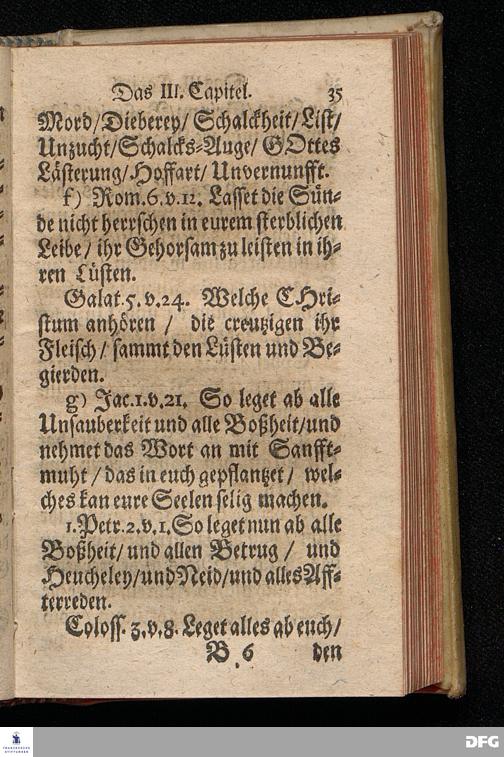 Das III. Capitel. 35
Mord/Dieberey/ Schalckheit/List/
Unzucht/Schalcks-Auge/ GOttes
Lästerung/Hoffart/ Unvernunfft.
f) Rom. 6. v. 12. Lasset die Sün-
de nicht herrschen in eurem sterblichen
Leibe / ihr Gehorsam zu leisten in ih-
ren Lüsten.
Galat. 5. v. 24. Welche CHri-
stum anhören / die creutzigen ihr
Fleisch / sammt den Lüsten und Be-
gierden.
g) Jac. 1. v. 21. So leget ab alle
Unsauberkeit und alle Boßheit/und
nehmet das Wort an mit Sanfft-
muht / das in euch gepflantzet / wel-
ches kan eure Seelen selig machen.
1. Petr. 2. v. 1. So leget nun ab alle
Boßheit/ und allen Betrug / und
Heucheley/und Neid/und alles Aff-
terreden.
Coloss. 3. v. 8. Leget alles ab euch/
B 6 den
FRANCKESCHE STIFTUNGEN
DFG